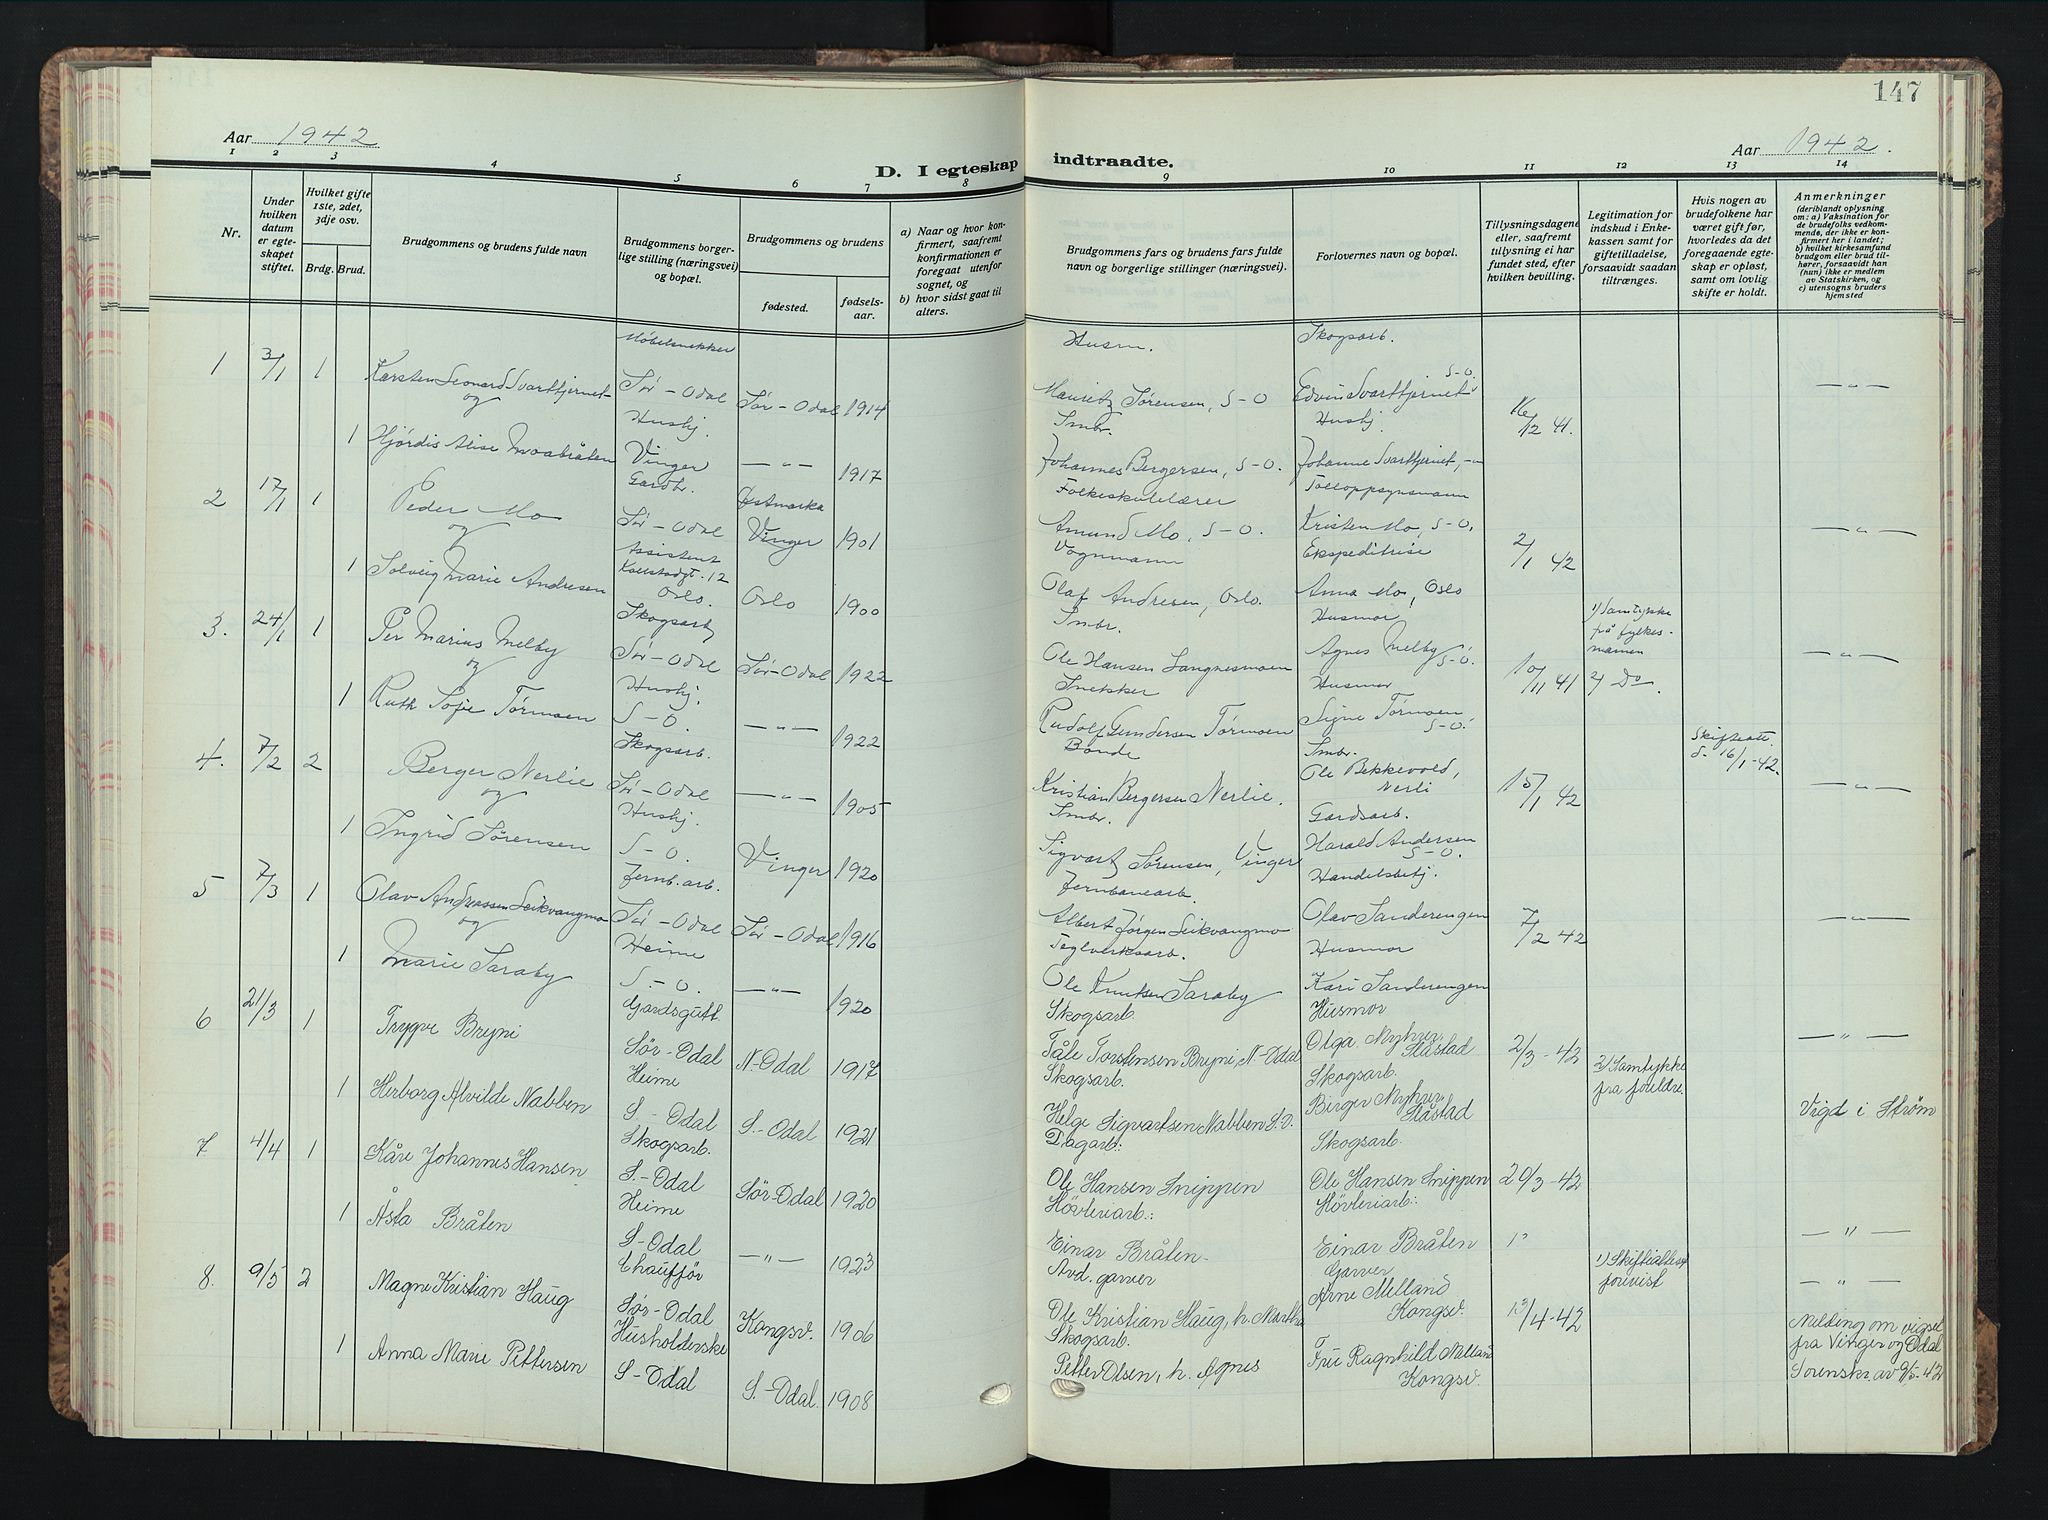 147
Aar 1942
D. I egteskap indtraadte.
Aar 1942.
1 2 3 4 5 6 7 8 9 10 11 12 13 14
Nr.
Under hvilken datum er egteskapet stiftet.
Hvilket gifte 1ste, 2det, 3dje osv.
Brdg. Brud.
Brudgommens og brudens fulde navn
Brudgommens borgerlige stilling (næringsvei) og bopæl.
Brudgommens og brudens
fødested.
fødselsaar.
a) Naar og hvor konfirmert, saafremt konfirmationen er foregaaet utenfor sognet, og
b) hvor sidst gaat til alters.
Brudgommens fars og brudens fars fulde navn og borgerlige stillinger (næringsvei).
Forlovernes navn og bopæl.
Tillysningsdagene eller, saafremt tillysning ei har fundet sted, efter hvilken bevilling.
Legitimation for indskud i Enkekassen samt for giftetilladelse, forsaavidt saadan tiltrænges.
Hvis nogen av brudefolkene har været gift før, hvorledes da det foregaaende egteskap er opløst, samt om lovlig skifte er holdt.
Anmerkninger (deriblandt oplysning om: a) Vaksination for de brudefolks vedkommende, der ikke er konfirmert her i landet; b) hvilket kirkesamfund brudgom eller brud tilhører, forsaavidt han (hun) ikke er medlem av Statskirken, og c) utensogns bruders hjemsted
Møbelsnekker Husm. Skogsarb.
1 3/1 1 Karsten Leonard Svarttjernet Sør-Odal Sør-Odal 1914 Mauritz Sørensen, S-O Edvin Svarttjernet S-O. 16/12 41. — " —
og Husbj. Smbr. Husbj.
1 Hjørdis Alise Moabråten Vinger — " — 1917 Johannes Bergersen, S-O. Johanne Svarttjernet, - "
Gardbr. Folkeskulelærer Tolloppsynsmann
2 17/1 1 Peder Mo Sør-Odal Østmarka Vinger 1901 Amund Mo, S-O. Kristen Mo, S-O. 2/1 42 — " —
og Assistent Vognmann Ekspeditrise
1 Solveig Marie Andresen Oslo. Oslo 1900 Olaf Andresen, Oslo. Anna Mo, Oslo
Skogsarb. Smbr. Husmor
3. 24/1 1 Per Marius Melby Sør-Odal Sør-Odal 1922 Ole Hansen Langnesmoen Agnes Melby S-O. 10/11 41 1) Samtykke frå fylkesmannen 2) Do. — " —
og Husbj. Snekker Husmor
1 Ruth Sofie Tørmoen S-O. — " — 1922 Rudolf Gundersen Tørmoen Signe Tørmoen S-O.
Skogsarb. Bonde Smbr.
4. 7/2 2 Berger Nerlie Sør-Odal — " — 1905 Kristian Bergersen Nerlie. Ole Bekkevold, Nerli 15/1 42 Skifteatt. d. 16/1-42. — " —
og Husbj. Smbr. Gardsarb.
1 Ingrid Sørensen S-O. Vinger 1920 Sigvart Sørensen, Vinger Harald Andersen S-O.
Jernb.arb. Jernbanearb. Handelsbetj.
5 7/3 1 Olav Andreassen Leikvangmo Sør-Odal Sør-Odal 1916 Albert Jørgen Leikvangmo Olav Sanderengen 7/2 42 — " —
og Heime Teglverksarb. Husmor
1 Marie Saraby S.-O. — " — 1920 Ole Knutsen Saraby Kari Sanderengen
Gardsgutt Skogsarb. Husmor
6 21/3 1 Trygve Bryni Sør-Odal N-Odal 1917 Tåle Torstensen Bryni, N-Odal Olga Myhrer Slåstad 2/3-42 2) Samtykke fra foreldre. — " —
Heime Skogsarb. Skogsarb.
1 Herborg Alvilde Nabben S.-Odal S.-Odal 1921 Helge Sigvartsen Nabben S.O. Berger Myhrer Slåstad Vigd i Strøm
Skogsarb. Dagarb: Skogsarb.
7 4/4 1 Kåre Johannes Hansen S.-Odal Sør-Odal 1920 Ole Hansen Snippen Ole Hansen Snippen 20/3-42
Heime Høvleriarb: Høvleriarb:
1 Åsta Bråten S-Odal — " — 1923 Einar Bråten Einar Bråten — " —
Chauffør Avd. garver Garver
8. 9/5 2 Magne Kristian Haug Sør-Odal Kongsv. 1906 Ole Kristian Haug, h. Martha Arne Melland Kongsv. 13/4-42 1) Skifteattest forevist — " —
Husholderske Skogsarb.
1 Anna Marie Pettersen S-Odal S.-Odal. 1908 Petter Olsen, h. Agnes Fru Ragnhild Melland Kongsv. Melding om vigsel fra Vinger og Odal Sorenskr. av 9/5-42